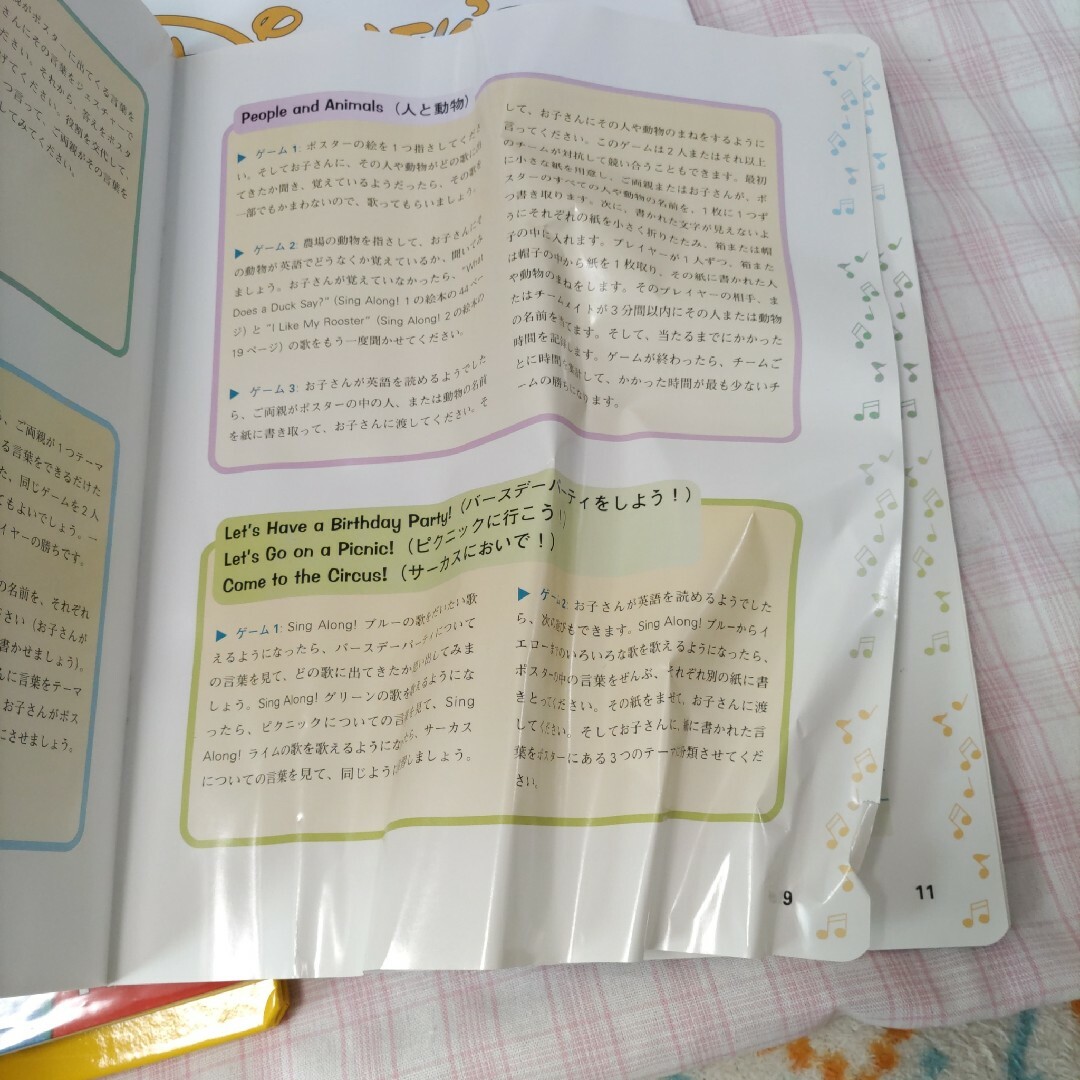 がポスターに出てくる言葉を
さんにその言葉をジェスチャーで
ださい。それから、答えをポスタ
げてください。役割を交代して、
つ言って、ご両親がその言葉を
してみてください。
、ご両親が1つテーマ
る言葉をできるだけた
た、同じゲームを2人
てもよいでしょう。一
イヤーの勝ちです。
の名前を、それぞれ
ださい（お子さんが
書かせましょう）。
んに言葉をテーマ
お子さんがポス
にさせましょう。
People and Animals（人と動物）
▶ ゲーム1: ポスターの絵を1つ指さしてくだ
い。そしてお子さんに、その人や動物がどの歌に
てきたか聞き、覚えているようだったら、その歌を
一部でもかまわないので、歌ってもらいましょう。
▶ ゲーム2: 農場の動物を指さして、お子さんに
の動物が英語でどうなくか覚えているか、聞いてみ
ましょう。お子さんが覚えていなかったら、"What
Does a Duck Say?" (Sing Along! 1の絵本の44ペー
ジ) と "I Like My Rooster" (Sing Along! 2の絵本の
19ページ) の歌をもう一度聞かせてください。
▶ ゲーム3: お子さんが英語を読めるようでした
ら、ご両親がポスターの中の人、または動物の名前
を紙に書き取って、お子さんに渡してください。そ
して、お子さんにその人や動物のまねをするように
言ってください。このゲームは2人またはそれ以上
のチームが対抗して競い合うこともできます。最初
に小さな紙を用意し、ご両親またはお子さんが、ポ
スターのすべての人や動物の名前を、1枚に1つず
つ書き取ります。次に、書かれた文字が見えないよ
うにそれぞれの紙を小さく折りたたみ、箱または帽
子の中に入れます。プレイヤーが1人ずつ、箱また
は帽子の中から紙を1枚取り、その紙に書かれた人
や動物のまねをします。そのプレイヤーの相手、ま
たはチームメイトが3分間以内にその人または動物
の名前を当てます。そして、当たるまでにかかった
時間を記録します。ゲームが終わったら、チームご
とに時間を集計して、かかった時間が最も少ないチ
ームの勝ちになります。
Let's Have a Birthday Party!（バースデーパーティをしよう！）
Let's Go on a Picnic!（ピクニックに行こう！）
Come to the Circus!（サーカスにおいで！）
▶ ゲーム1: Sing Along! ブルーの歌をだいたい歌
えるようになったら、バースデーパーティについて
の言葉を見て、どの歌に出てきたか思い出してみま
しょう。Sing Along! グリーンの歌を歌えるようにな
ったら、ピクニックについての言葉を見て、Sing
Along! ライムの歌を歌えるようになったら、サーカス
についての言葉を見て、同じように しましょう。
▶ ゲーム2: お子さんが英語を読めるようでした
ら、次の遊びもできます。Sing Along! ブルーからイ
エローまでのいろいろな歌を歌えるようになったら、
ポスターの中の言葉をぜんぶ、それぞれ別の紙に書
きとってください。その紙をまぜて、お子さんに渡
してください。そしてお子さんに、紙に書かれた言
葉をポスターにある3つのテーマに分類させてくだ
さい。
9
11